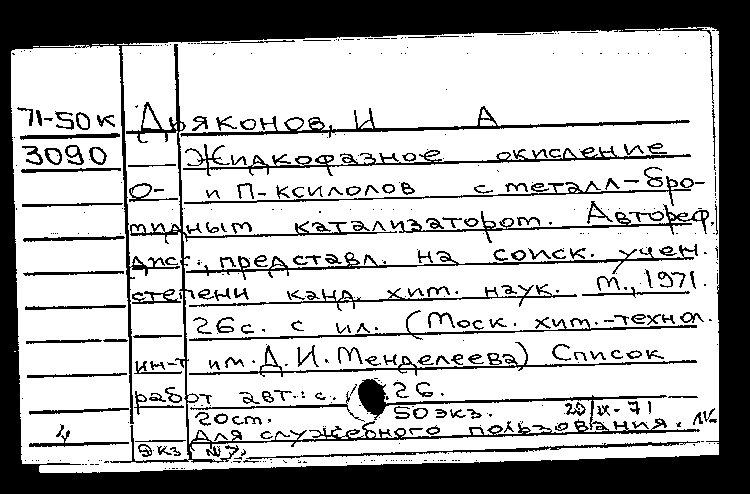 71-50к Дьяконов, И А
3090 Жидкофазное окисление
о- и П-ксилолов с металл-бро-
мидным катализатором. Автореф.
дисс., представл. на соиск. учен.
степени канд. хим. наук. М., 1971.
26с. с ил. (Моск. хим.-технол.
ин-т им. Д. И. Менделеева) Список
работ авт.: с. 26.
20ст. 50экз. 20/IX-71
4 Для служебного пользования.
Экз №7.